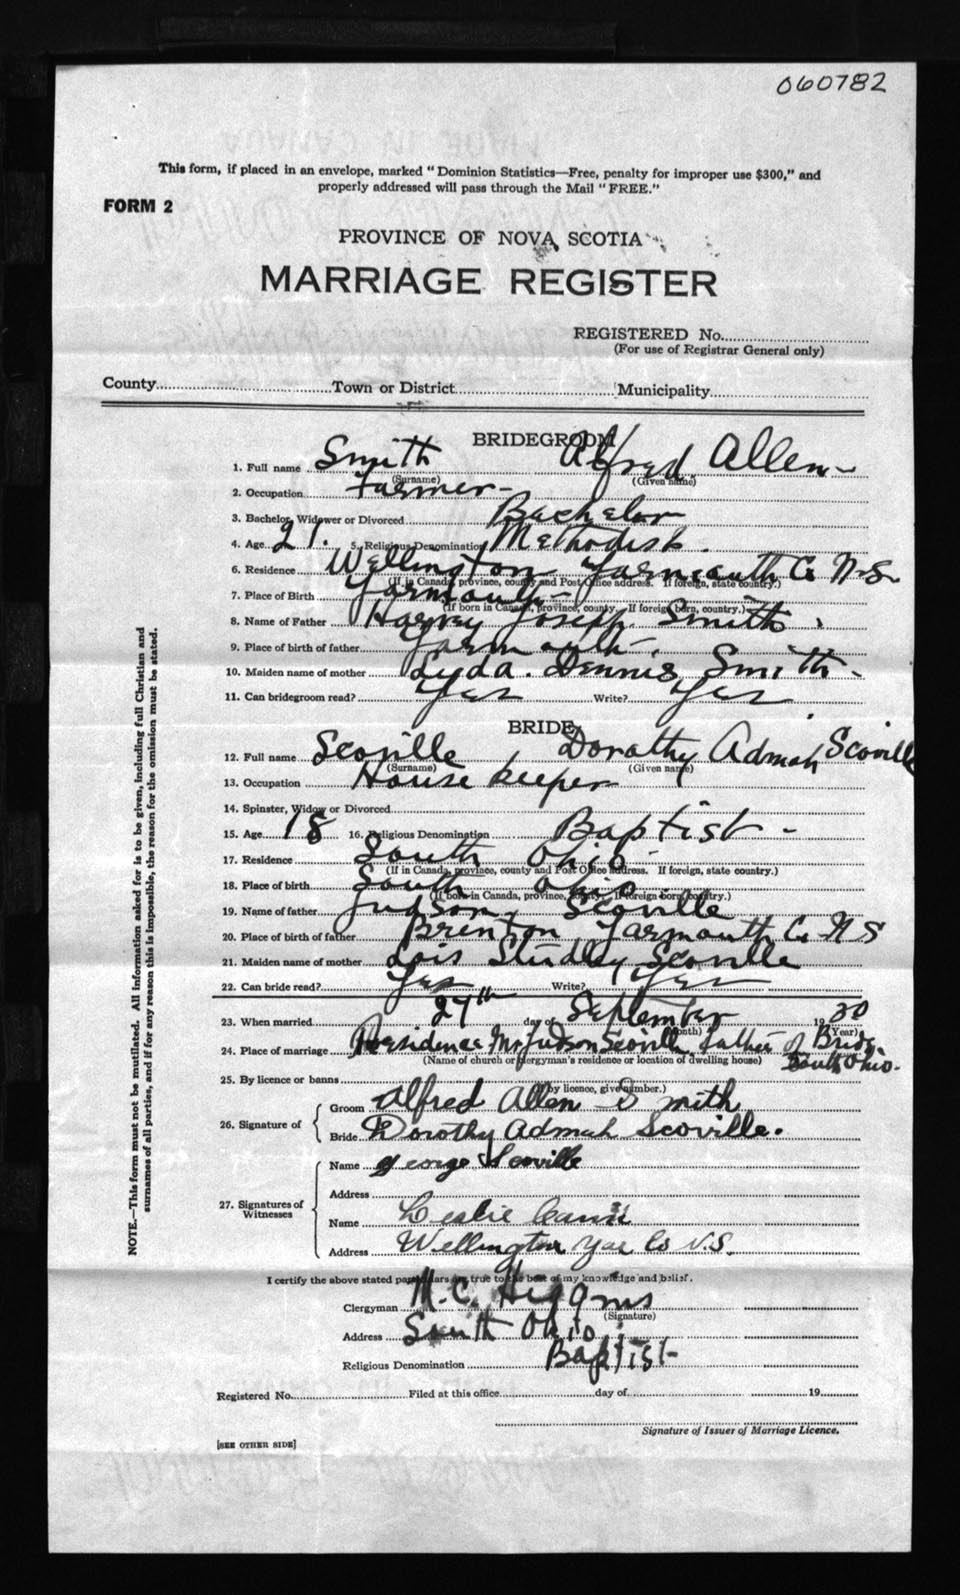 060782
This form, if placed in an envelope, marked "Dominion Statistics—Free, penalty for improper use $300," and
properly addressed will pass through the Mail "FREE."
FORM 2
PROVINCE OF NOVA SCOTIA
MARRIAGE REGISTER
REGISTERED No.
(For use of Registrar General only)
County Town or District Municipality
BRIDEGROOM
1. Full name Smith Alfred Allen
(Surname) (Given name)
2. Occupation Farmer
3. Bachelor, Widower or Divorced Bachelor
4. Age 21. 5. Religious Denomination Methodist.
6. Residence Wellington Yarmouth Co N.S.
(If in Canada, province, county and Post Office address. If foreign, state country.)
7. Place of Birth Yarmouth
(If born in Canada, province, county. If foreign born, country.)
8. Name of Father Harvey Joseph Smith
9. Place of birth of father Yarmouth
10. Maiden name of mother Lyda. Dennis Smith
11. Can bridegroom read? Yes Write? Yes
BRIDE
12. Full name Scoville Dorothy Admah Scoville
(Surname) (Given name)
13. Occupation House keeper
14. Spinster, Widow or Divorced
15. Age 18 16. Religious Denomination Baptist
17. Residence South Ohio
(If in Canada, province, county and Post Office address. If foreign, state country.)
18. Place of birth South Ohio
(If born in Canada, province, county. If foreign born, country.)
19. Name of father Judson Scoville
20. Place of birth of father Brenton Yarmouth Co N S
21. Maiden name of mother Lois Studley Scoville
22. Can bride read? Yes Write? Yes
23. When married 27th day of September 1930
(Month) (Year)
24. Place of marriage Residence Mr Judson Scoville Father of Bride
South Ohio.
(Name of church or clergyman's residence or location of dwelling house)
25. By licence or banns
(by licence, give number.)
26. Signature of
Groom Alfred Allen Smith
Bride Dorothy Admah Scoville.
27. Signatures of
Witnesses
Name George Scoville
Address
Name Leslie Cann
Address Wellington Yar Co N.S.
I certify the above stated particulars are true to the best of my knowledge and belief.
Clergyman M. C. Higgins
(Signature)
Address South Ohio
Religious Denomination Baptist
Registered No. Filed at this office day of 19
Signature of Issuer of Marriage Licence.
[SEE OTHER SIDE]
NOTE.—This form must not be mutilated. All information asked for is to be given, including full Christian and
surnames of all parties, and if for any reason this is impossible, the reason for the omission must be stated.